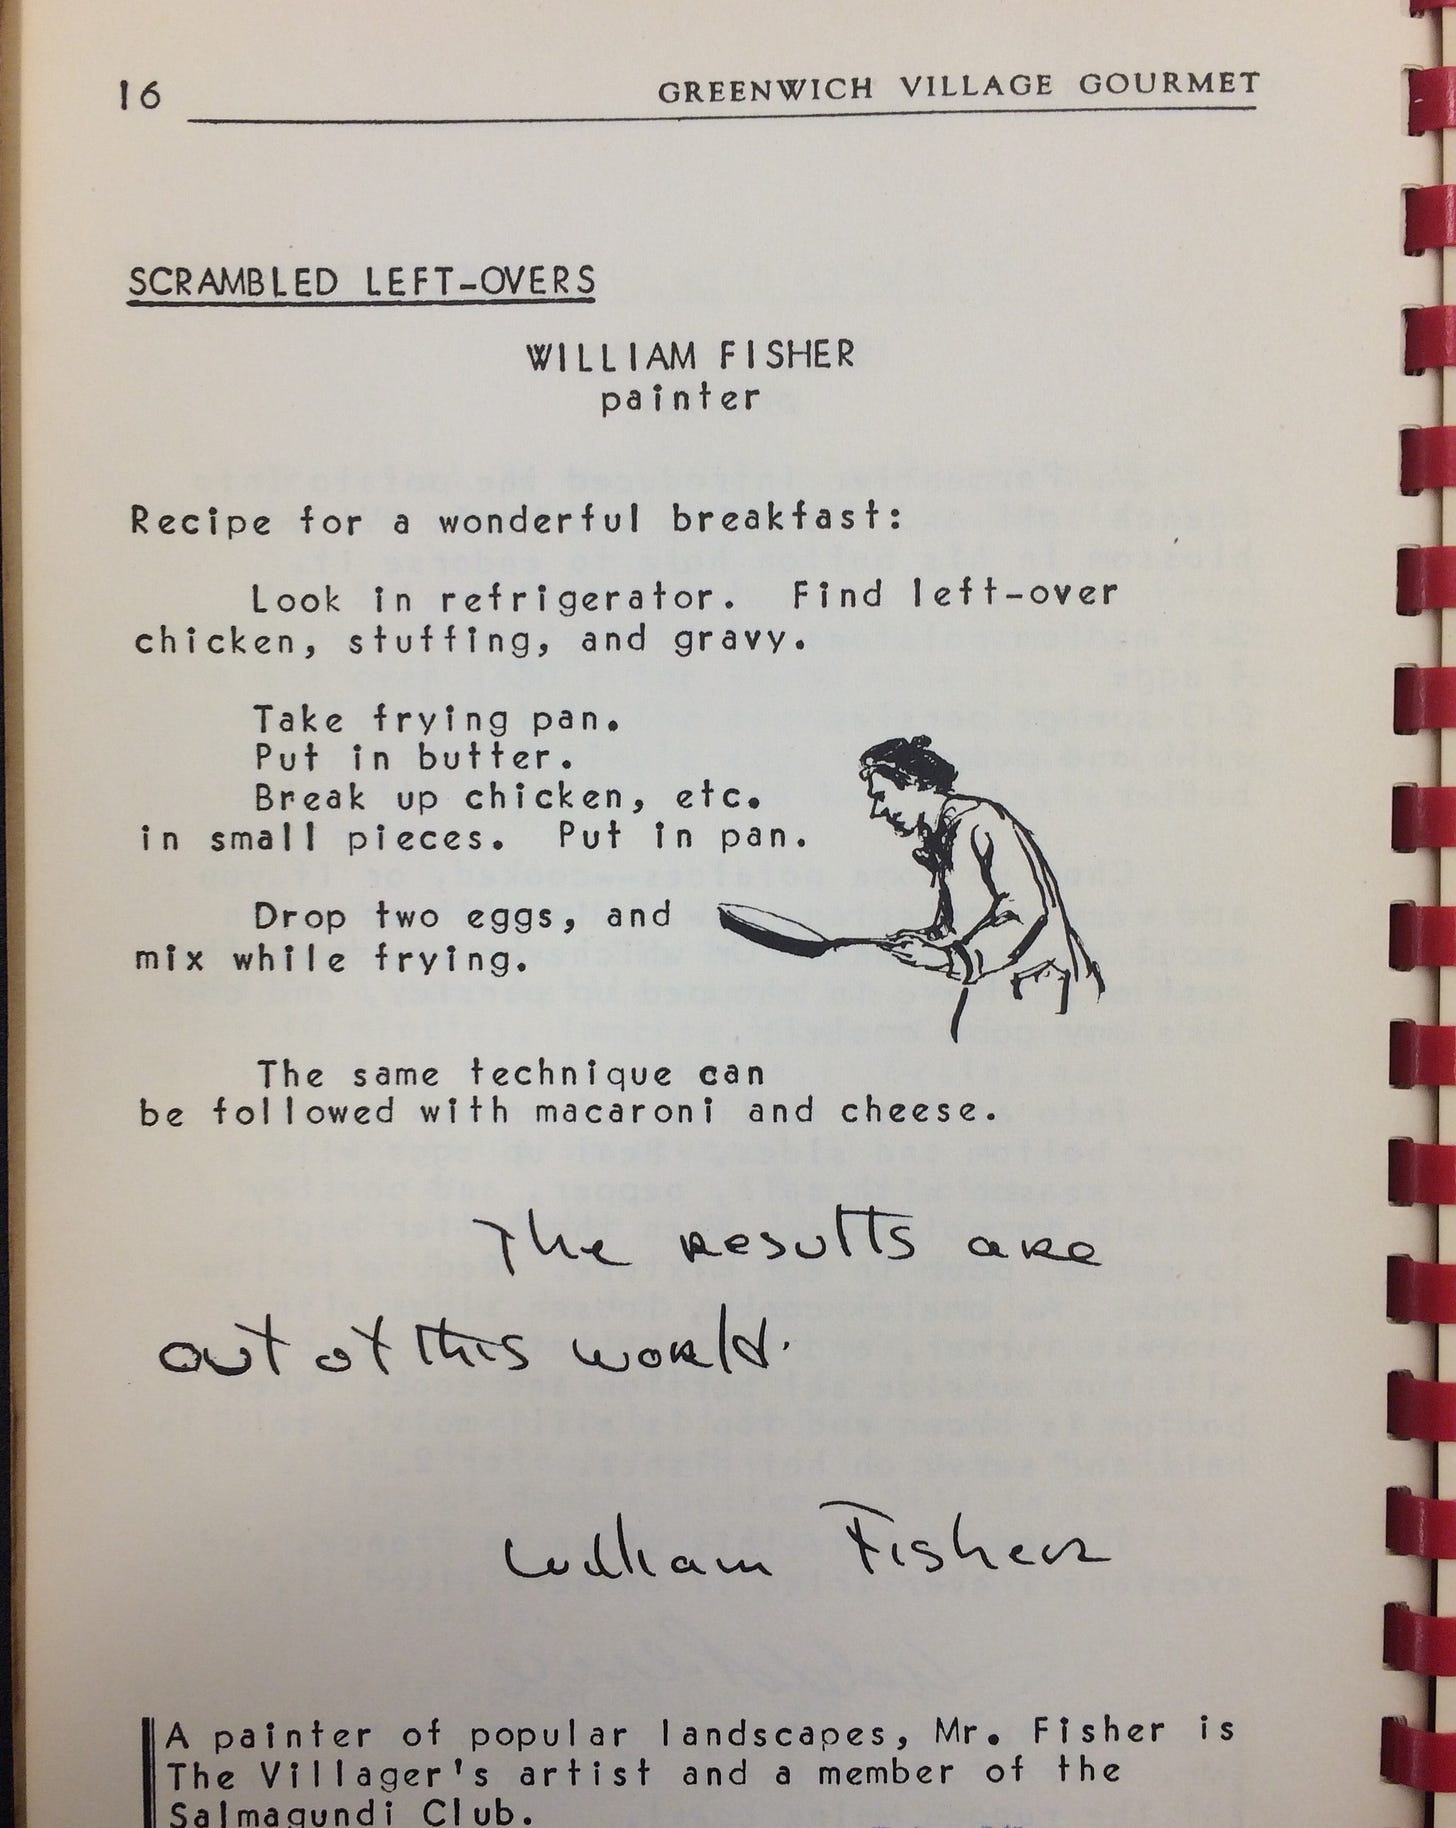 16 GREENWICH VILLAGE GOURMET
SCRAMBLED LEFT-OVERS
WILLIAM FISHER
painter
Recipe for a wonderful breakfast:
Look in refrigerator. Find left-over
chicken, stuffing, and gravy.
Take frying pan.
Put in butter.
Break up chicken, etc.
in small pieces. Put in pan.
Drop two eggs, and
mix while frying.
The same technique can
be followed with macaroni and cheese.
The results are
out of this world.
William Fisher
A painter of popular landscapes, Mr. Fisher is
The Villager's artist and a member of the
Salmagundi Club.